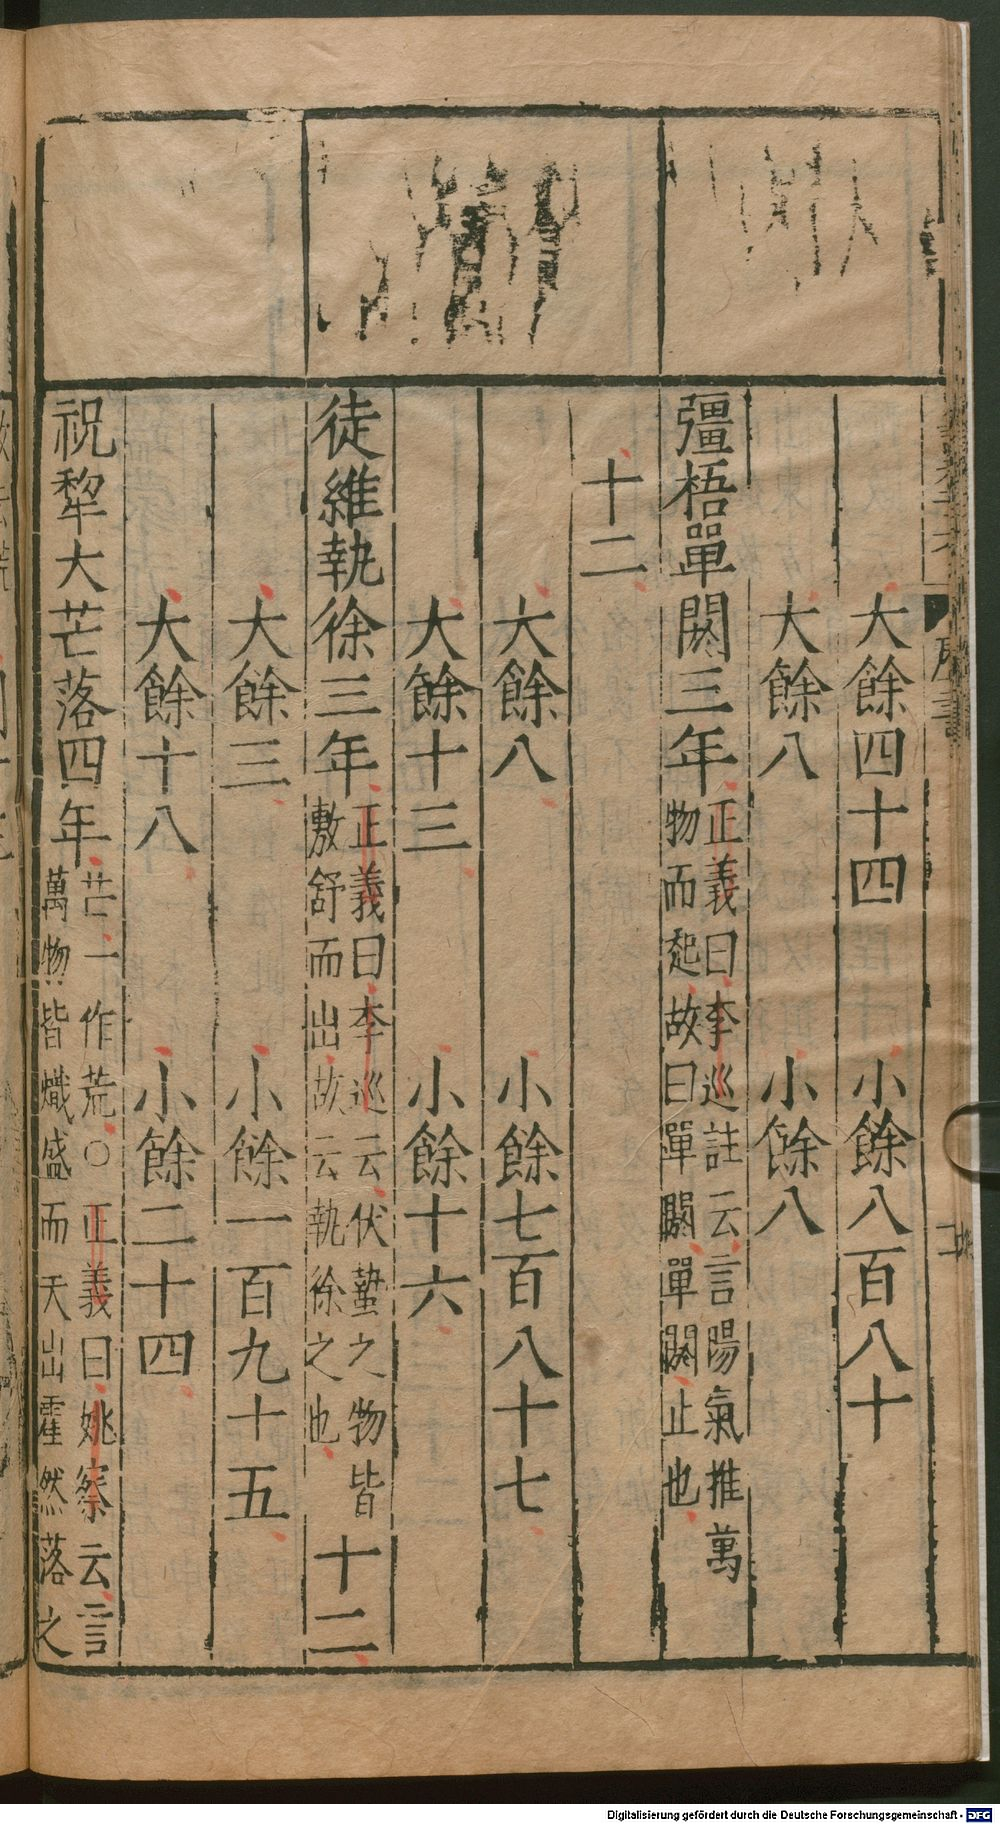 大餘四十四 小餘八百八十
大餘八 小餘八
彊梧單閼三年正義曰李巡註云言陽氣推萬
物而起故曰單閼單閼止也
十二
大餘八 小餘七百八十七
大餘十三 小餘十六
徒維執徐三年正義曰李巡云伏蟄之物皆
敷舒而出故云執徐之也 十二
大餘三 小餘一百九十五
大餘十八 小餘二十四
祝犂大芒落四年芒一作荒○正義曰姚察云言
萬物皆熾盛而天出霍然落之
Digitalisierung gefördert durch die Deutsche Forschungsgemeinschaft - DFG